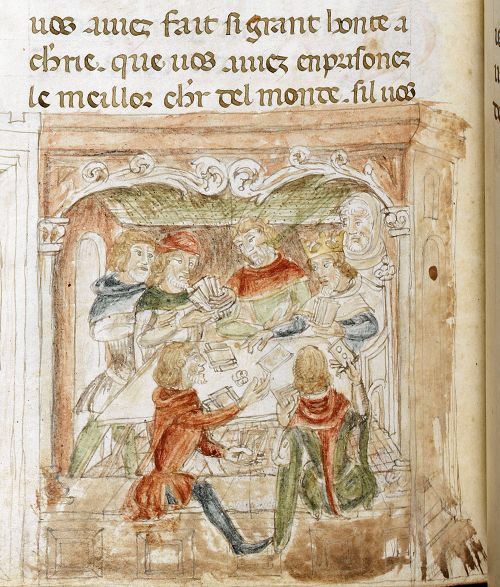 uos auiez fait si grant honte a
chr̃ie. que uos auiez enprisonez
le meillor chr̃ del monde. sil uos